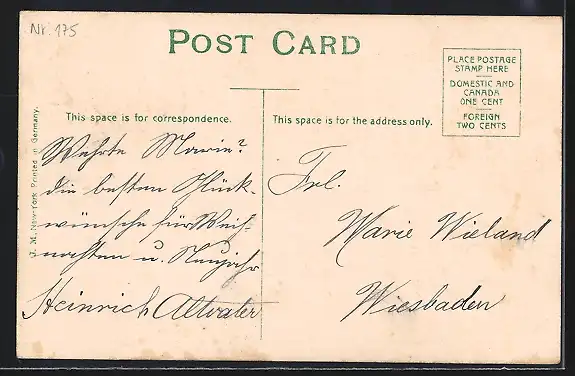 Nr. 175
POST CARD
PLACE POSTAGE
STAMP HERE
DOMESTIC AND
CANADA
ONE CENT
FOREIGN
TWO CENTS
This space is for correspondence.
This space is for the address only.
J. M. New-York Printed in Germany.
Wehrte Marie?
die besten Glück-
wünsche für Weih-
nachten u. Neujahr
Heinrich Altvater
Frl.
Marie Wieland
Wiesbaden